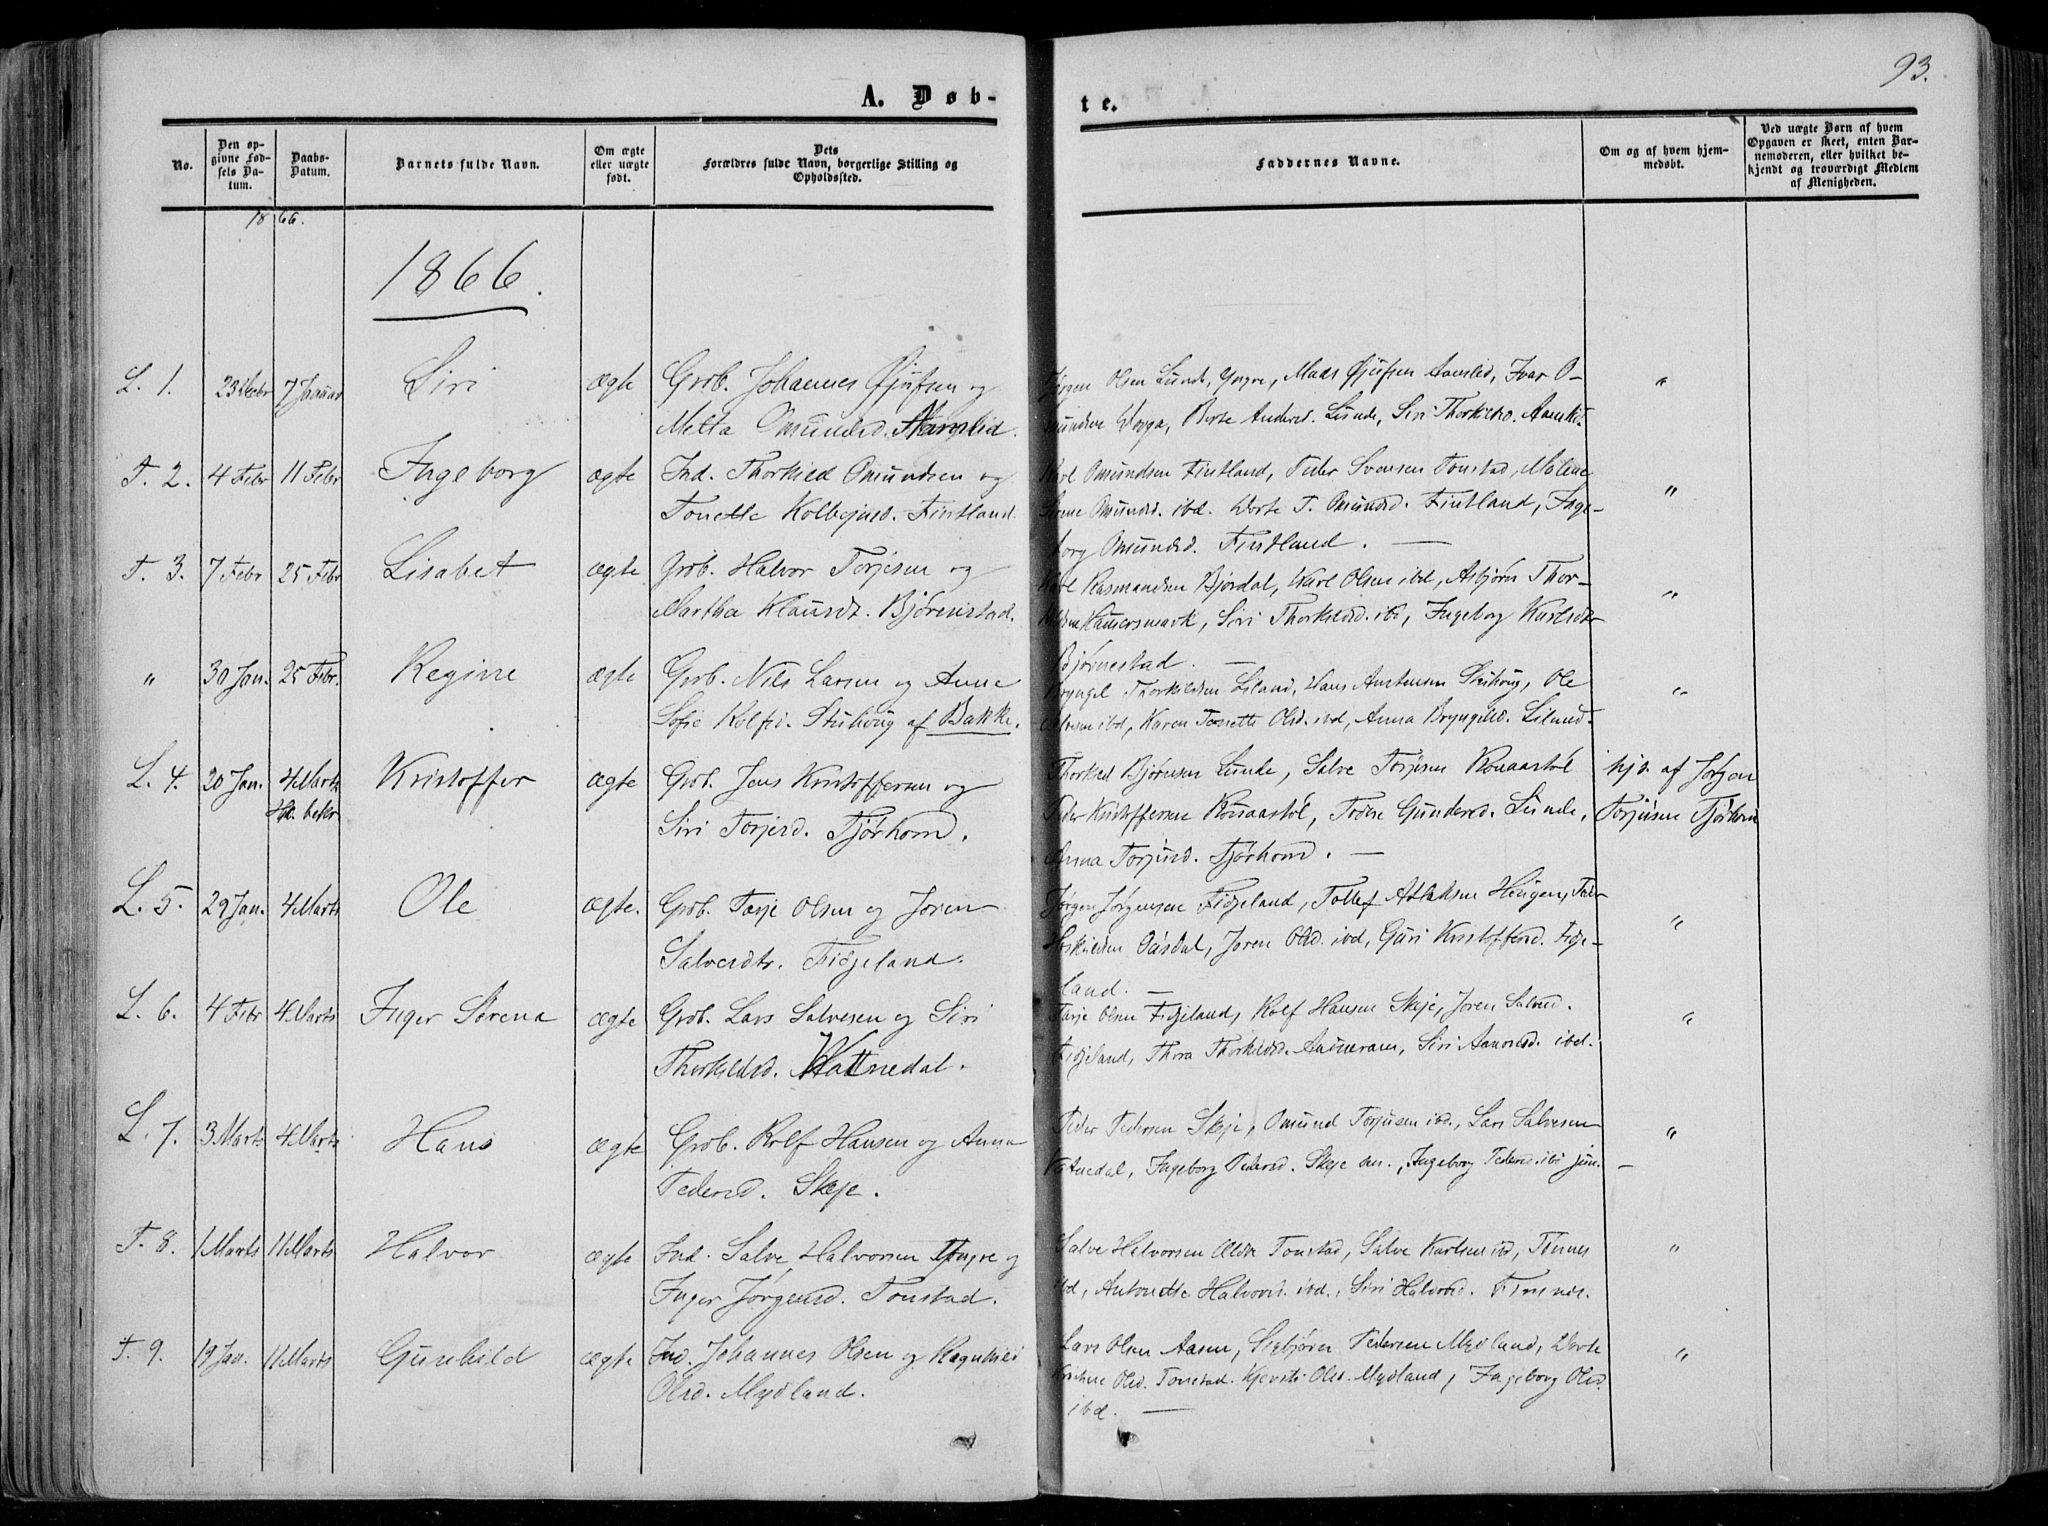 93.
A. Døb-
te.
No.
Den op-
givne Fød-
sels Da-
tum.
Daabs-
Datum.
Barnets fulde Navn.
Om ægte
eller uægte
født.
Dets
Forældres fulde Navn, borgerlige Stilling og
Opholdssted.
Faddernes Navne.
Om og af hvem hjem-
medøbt.
Ved uægte Børn af hvem
Opgaven er skeet, enten Bar-
nemoderen, eller hvilket be-
kjendt og troværdigt Medlem
af Menigheden.
1866.
1866.
L. 1. 23 Decbr 7 Januar Siri ægte Grb. Johannes Øjufsen og
Metta Omundsd. Aamslid.
Jørgen Olsen Lunde, Yngre, Mads Øjufsen Aamslid, Ivar O-
mundsen, Berte Anders. Lunde, Siri Thorkilsd. "
T. 2. 4 Febr 11 Febr Ingeborg ægte Ind. Thorkild Omundsen og
Tonette Kolbejnsd. Fintland.
Karl Omundsen Fintland, Peder Svensen Tonstad, Malene
Omundsd. ibd. Dorte T. Omundsd. Fintland, Inge-
borg Omundsd. Fintland. — "
T. 3. 7 Febr 25 Febr Lisabet ægte Grb. Halvor Torjesen og
Martha Klausdt. Bjørnestad.
Karl Rasmundsen Bjørdal, Karl Olsen ibd, Asbjørn Thor-
kildsen Hauersmark, Siri Thorkildsd. ibd, Ingeborg Karlsdtr
Bjørnestad. — "
" 30 Jan. 25 Febr. Regine ægte Grb. Nils Larsen og Anne
Sofie Rolfsd. Stuhoug af Bakke.
Bryngel Thorkildsen Liland, Hans Austensen Stuhoug, Ole
ibd, Karen Tonette Olsd. ibd, Anna Bryngelsd. Liland. "
L. 4. 20 Jan. 4 Marts Kristoffer ægte Grb. Jens Kristoffersen og
Siri Torjesd. Tjørhom.
Thorkild Bjørnsen Lunde, Salve Torjesen Rousastøl
Peder Kristoffersen Rousastøl, Gundersd. Lunde,
Anna Torjusd. Tjørhom. —
hjd. af Jørgen
Torjusen Tjørhom
L. 5. 29 Jan. 4 Marts Ole ægte. Grb. Tarje Olsen og Joren
Salvesdtr. Fidjeland.
Jørgen Jørgensen Fidjeland, Tollef Adladsen Haugen, Peder
Ousdal, Joren Olsd. ibd, Guri Kristoffersd. Fidje-
land. — "
L. 6. 4 Febr 4 Marts Inger Sørena ægte Grb. Lars Salvesen og Siri
Thorkildsd. Katnedal.
Tarje Olsen Fidjeland, Rolf Hansen Skeje, Joren Salvesd.
Fidjeland, Thora Thorkildsd. Aamaram, Siri Aanonsd. ibd. "
L. 7. 3 Marts 4 Marts Hans ægte Grb. Rolf Hansen og Anna
Pedersd. Skeje.
Peder Pedersen Skeje, Omund Torjusen ibd., Lars Salvesen
Katnedal, Ingeborg Pedersd. Skeje sen., Ingeborg Pedersd. ibd jun. — "
T. 8. 1 Marts 11 Marts Halvor ægte Ind. Salve Halvorsen Yngre og
Inger Jørgensd. Tonstad.
Salve Halvorsen Ældre Tonstad, Salve Karlsen ibd, Tønnes
ibd, Antonette Halvorsd. ibd., Siri Halvorsd. "
T. 9. 19 Jan. 11 Marts Gunhild ægte Ind. Johannes Olsen og Ragnhild
Olsd. Mydland.
Lars Olsen Aasen, Sigbjørn Pedersen Mydland, Dorte
Kristine Olsd. Tonstad. Kjersti Olsd. Mydland, Ingeborg Olsd.
ibd. — "